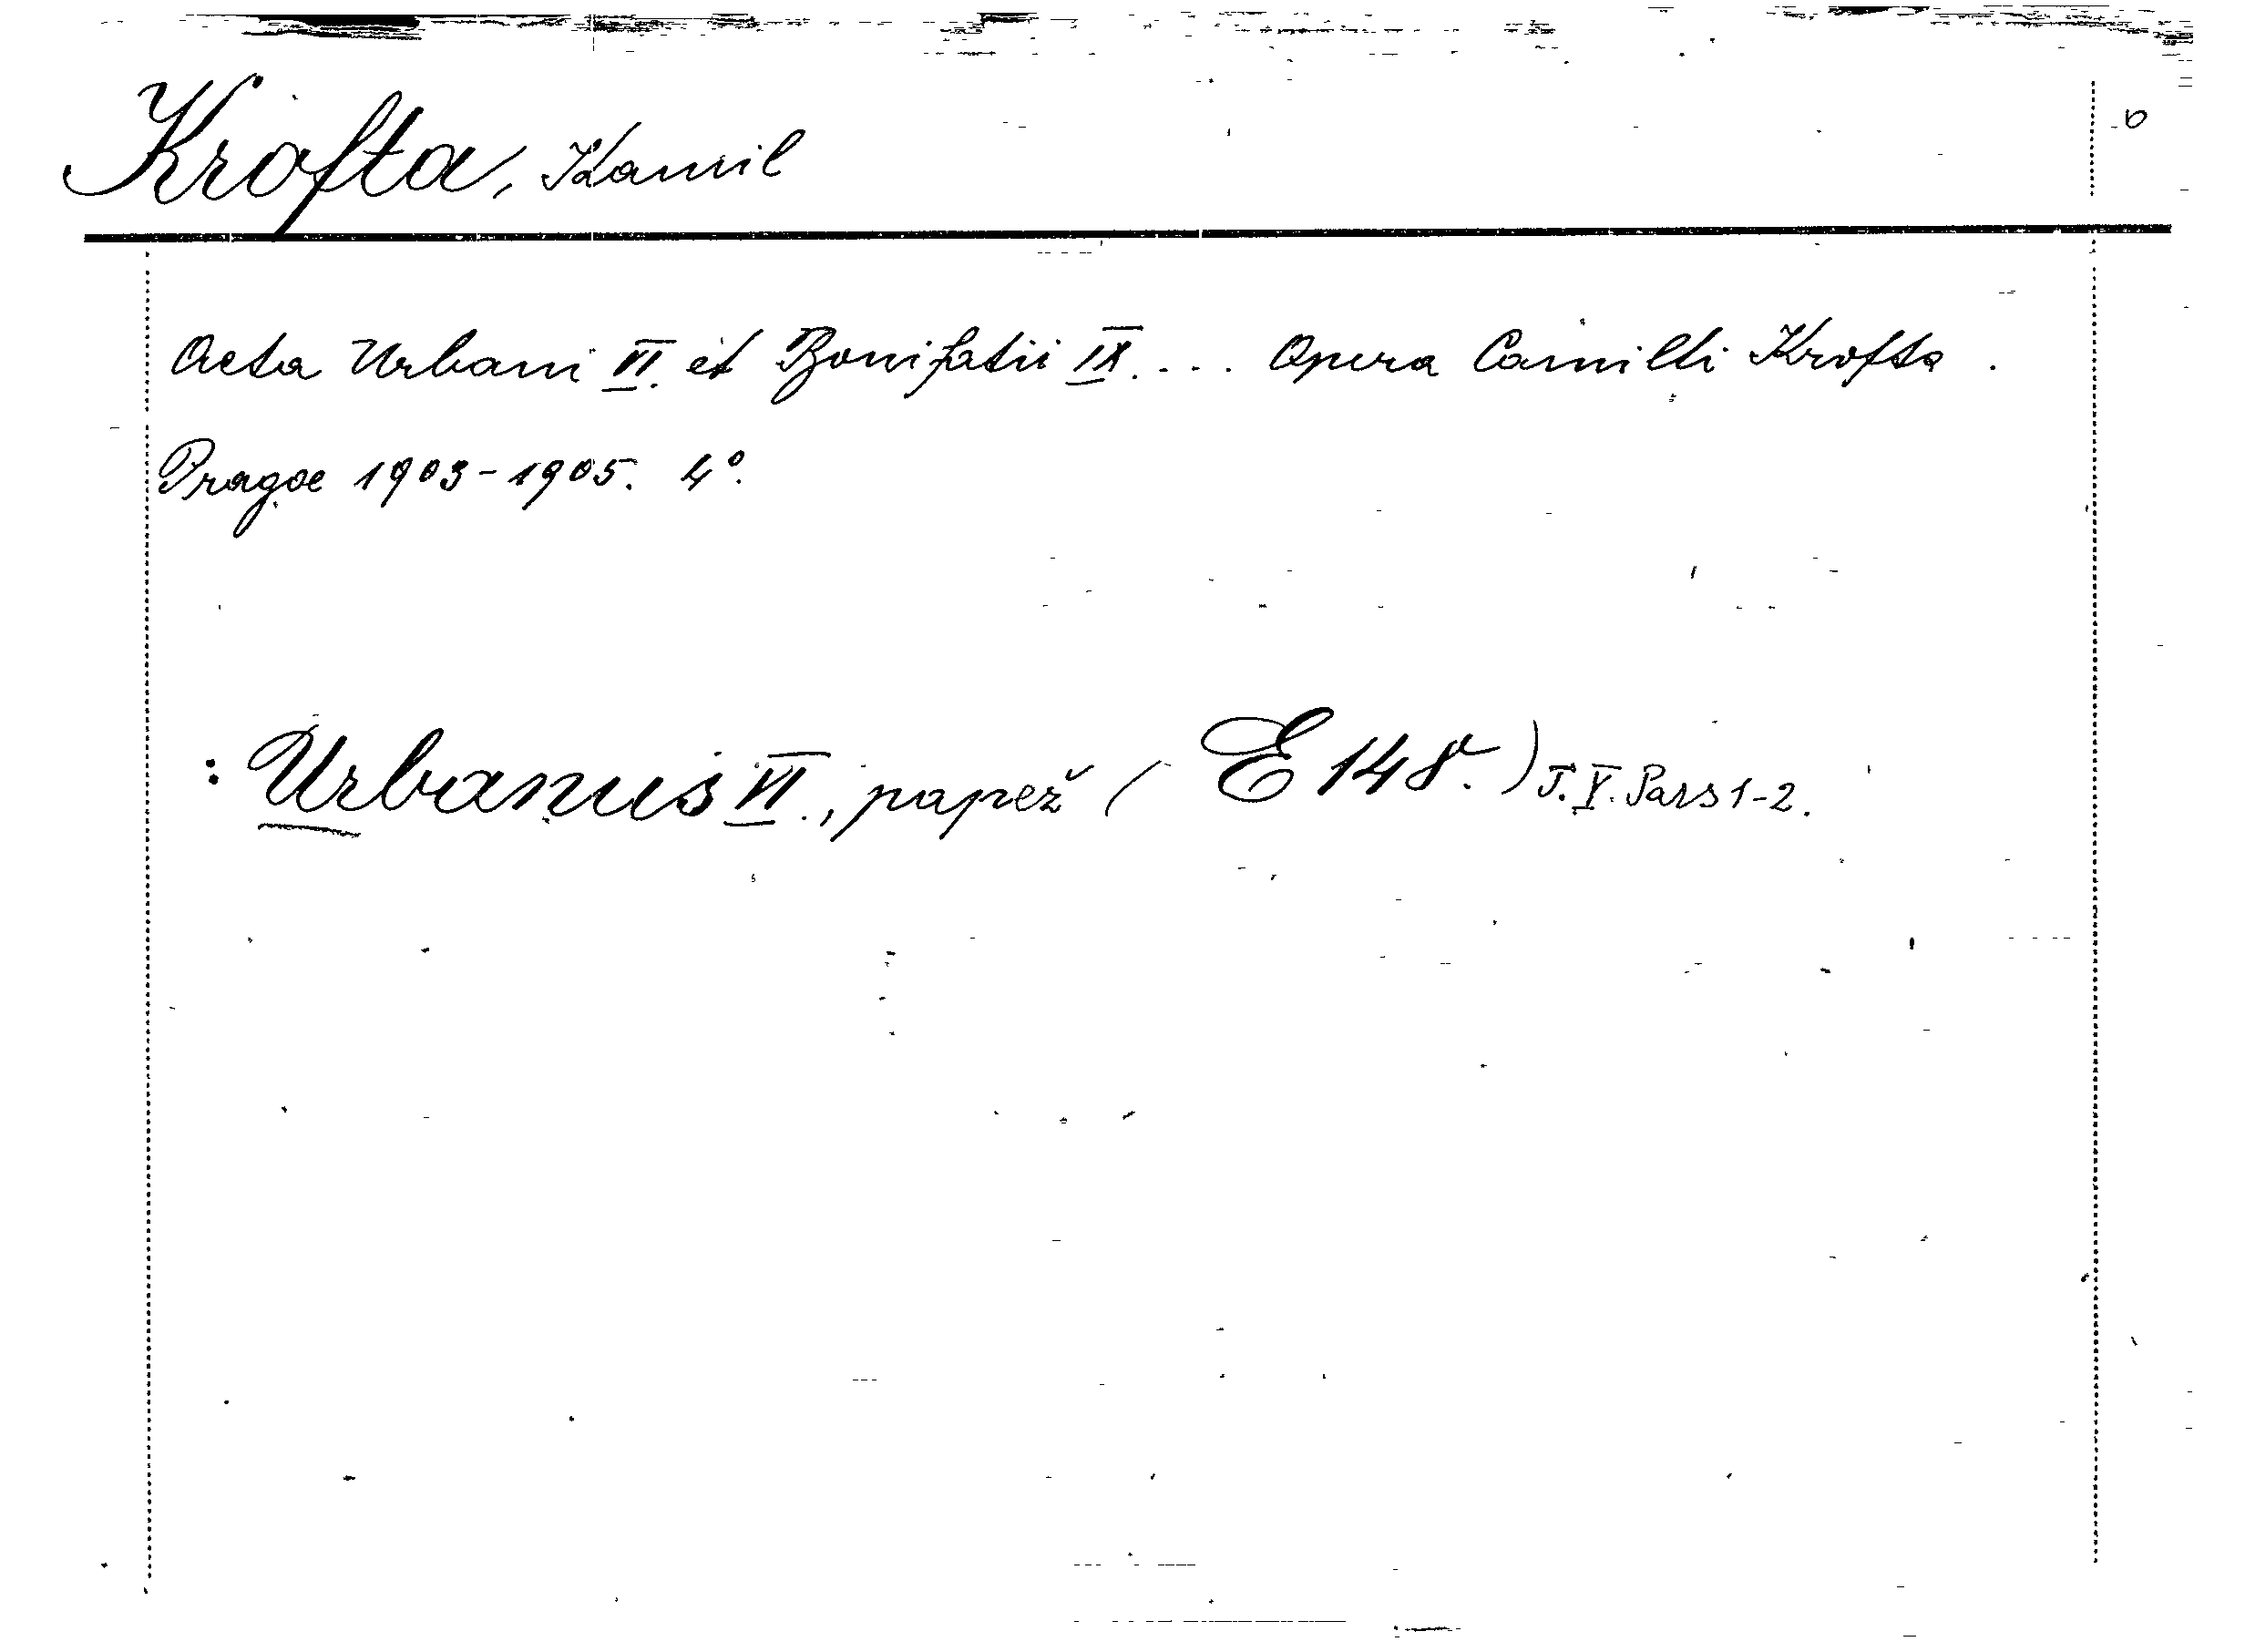 Krofta, Kamil
6
Acta Urbani VI. et Bonifatii IX. ... Opera Camilli Krofta.
Pragae 1903-1905. 4º.
: Urbanus VI., papež (E 148.) T. V. Pars 1-2.